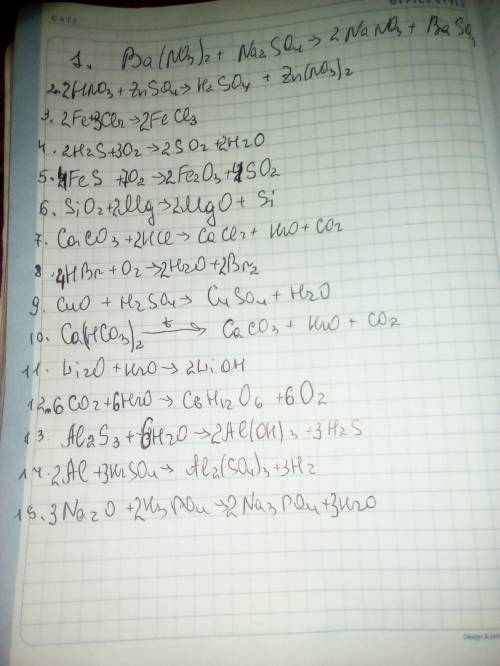 DATE
OFFICE STYLE
1. Ba(NO3)2 + Na2SO4 → 2NaNO3 + BaSO4
2. 2HNO3 + ZnSO4 → H2SO4 + Zn(NO3)2
3. 2Fe+3Cl2→2FeCl3
4. 2H2S+3O2→2SO2+2H2O
5. 4FeS +7O2→2Fe2O3+4SO2
6. SiO2+2Mg→2MgO+ Si
7. CaCO3+2HCl→ CaCl2+ H2O+CO2
8. 4HBr+O2→2H2O+2Br2
9. CuO + H2SO4→ CuSO4 + H2O
10. Ca(HCO3)2 t→ CaCO3 + H2O + CO2
11. Li2O +H2O→ 2LiOH
12. 6CO2+6H2O→ C6H12O6 +6O2
13. Al2S3+6H2O→2Al(OH)3+3H2S
14. 2Al+3H2SO4→ Al2(SO4)3+3H2
15. 3Na2O +2H3PO4→2Na3PO4+3H2O